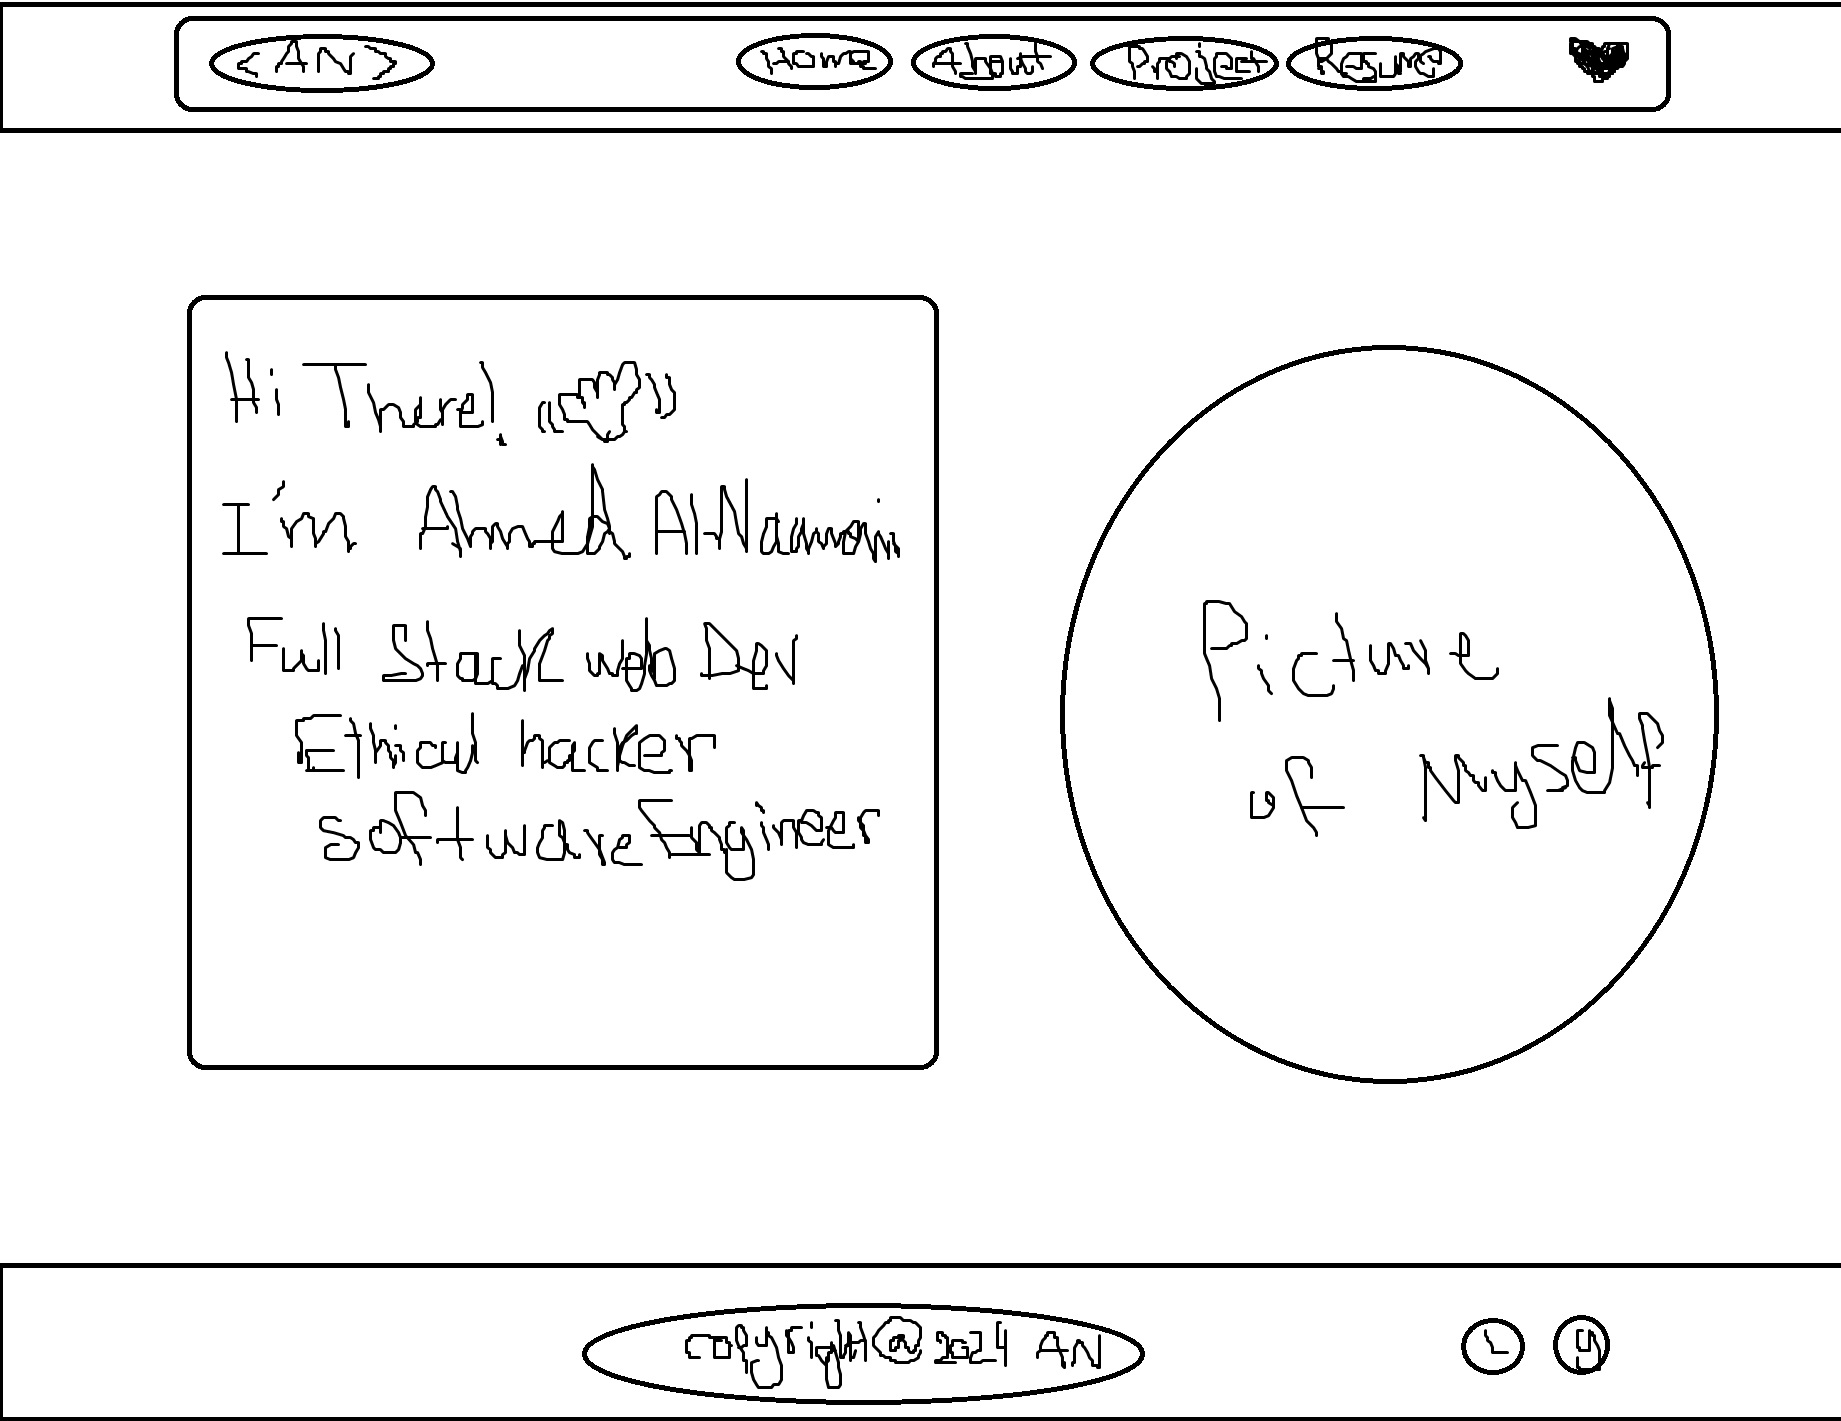 <AN> Home About Project Resume
Hi There!
I'm Ahmed Al-Naamani
Full Stack web Dev
Ethical hacker
software Engineer
Picture
of Myself
copyright@2024 AN L g